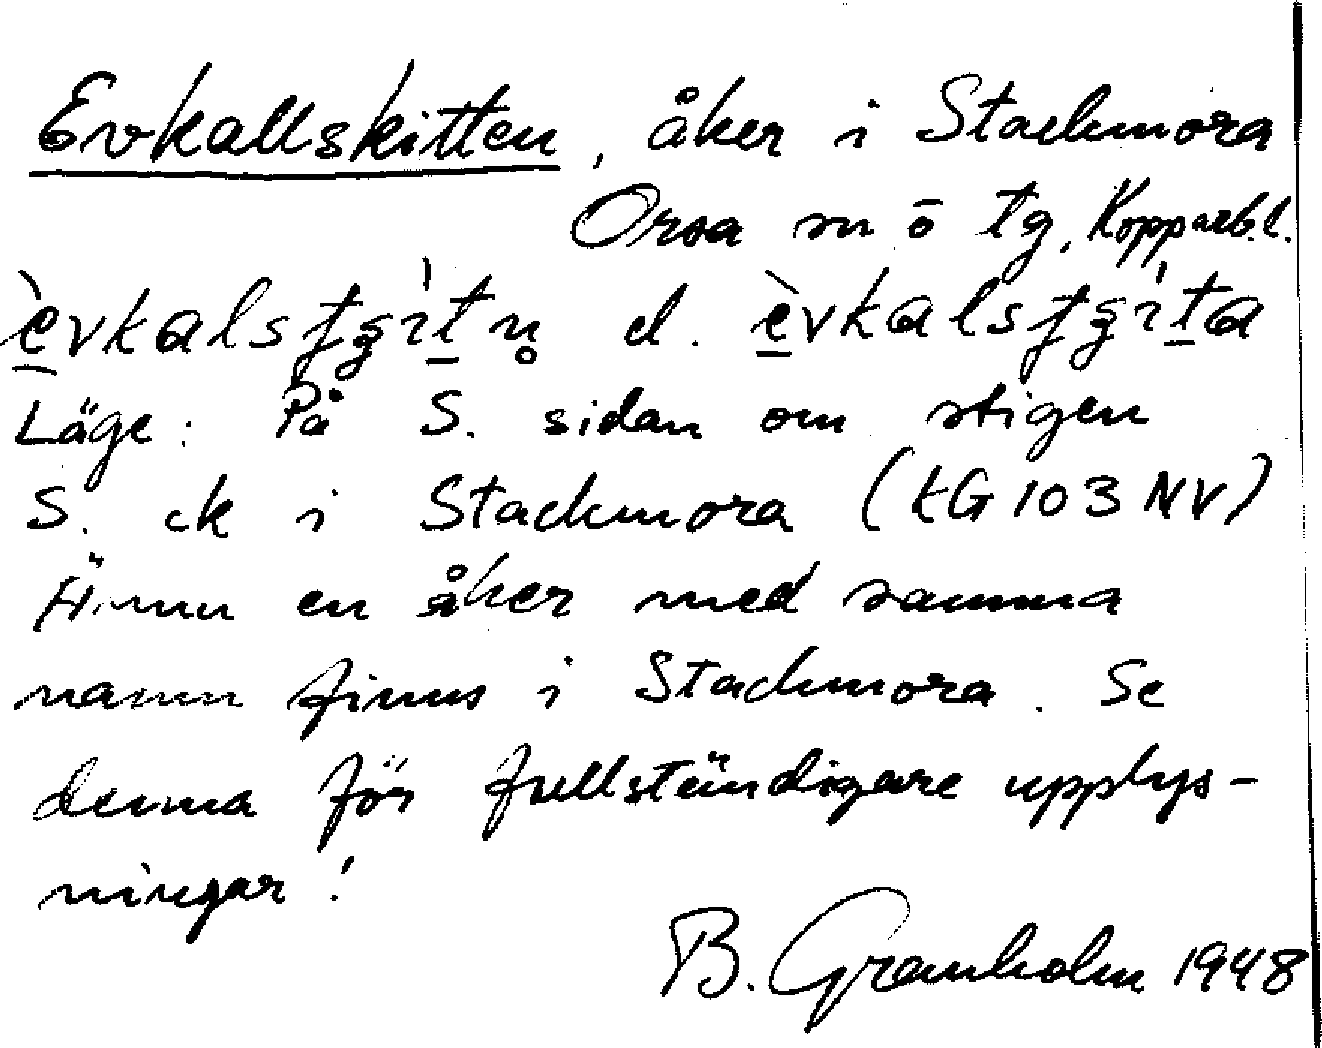 Evkallskitten, åker i Stackmora
Orsa sn ö tg, Kopparb.l.
el.
Läge: På S. sidan om stigen
S. ek i Stackmora (kG 103 NV)
Ännu en åker med samma
namn finns i Stackmora. Se
denna för fullständigare upplys-
ningar!
B. Granholm 1948